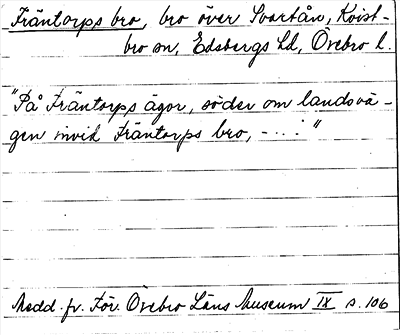 Fräntorps bro, bro över Svartån, Kvist-
bro sn, Edsbergs hd, Örebro l.
"På Fräntorps ägor, söder om landsvä-
gen invid Fräntorps bro, -...."
Medd. fr. För. Örebro Läns Museum IX s. 106